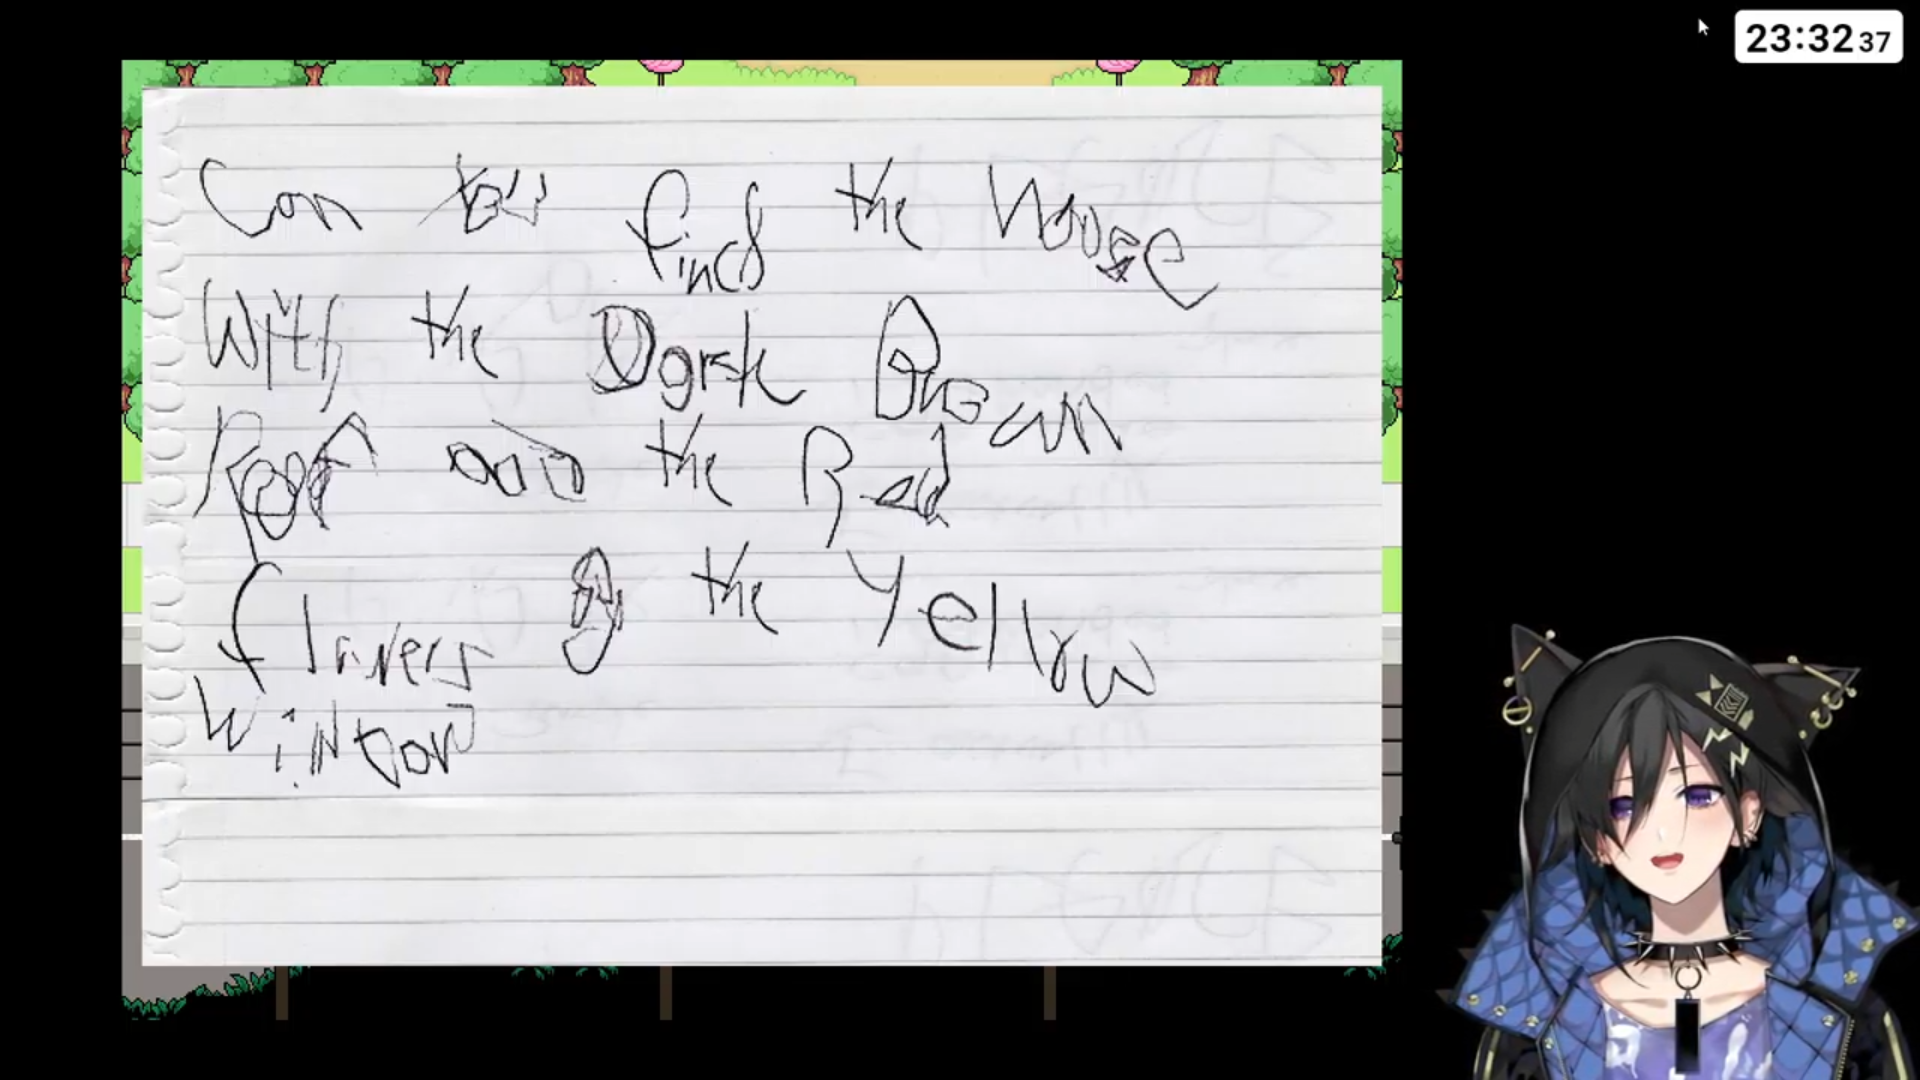 23:32 37
Can You find the House
With the Dark Brown
Roof and the Red
flawers By the Yellow
Window